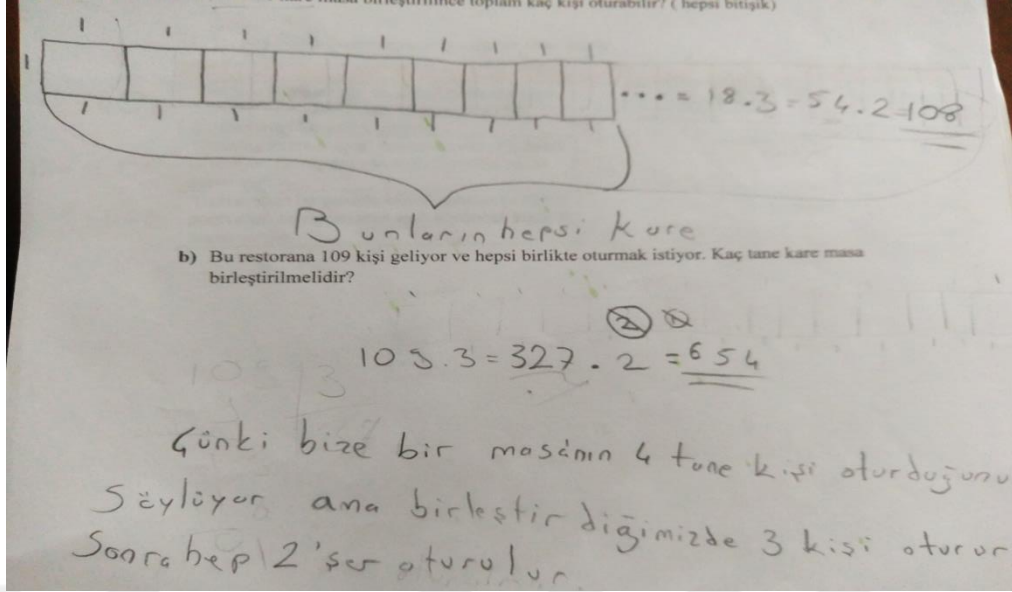 kare masa birleştirilince toplam kaç kişi oturabilir? ( hepsi bitişik)
1 1 1 1 1 1 1 1 1
1
... = 18.3 = 54.2 108
1 1 1 1 1 1 1 1 1
Bunların hepsi kare
b) Bu restorana 109 kişi geliyor ve hepsi birlikte oturmak istiyor. Kaç tane kare masa
birleştirilmelidir?
109.3=327.2=654
Çünki bize bir masanın 4 tane kişi oturduğunu
Söylüyor ama birleştirdiğimizde 3 kişi oturur
Sonra hep 2'şer oturulur